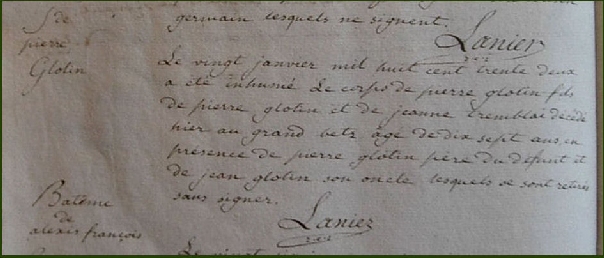 germain lesquels ne signent.
Lanier
S. de
pierre
Glotin
Le vingt janvier mil huit cent trente deux
a été inhumé le corps de pierre glotin fils
de pierre glotin et de jeanne tremblai décédé
hier au grand betz age de dix sept ans, en
présence de pierre glotin père du défunt et
de jean glotin son oncle lesquels se sont retirés
sans signer.
Lanier
Batême
de
alexis françois
Le vingt